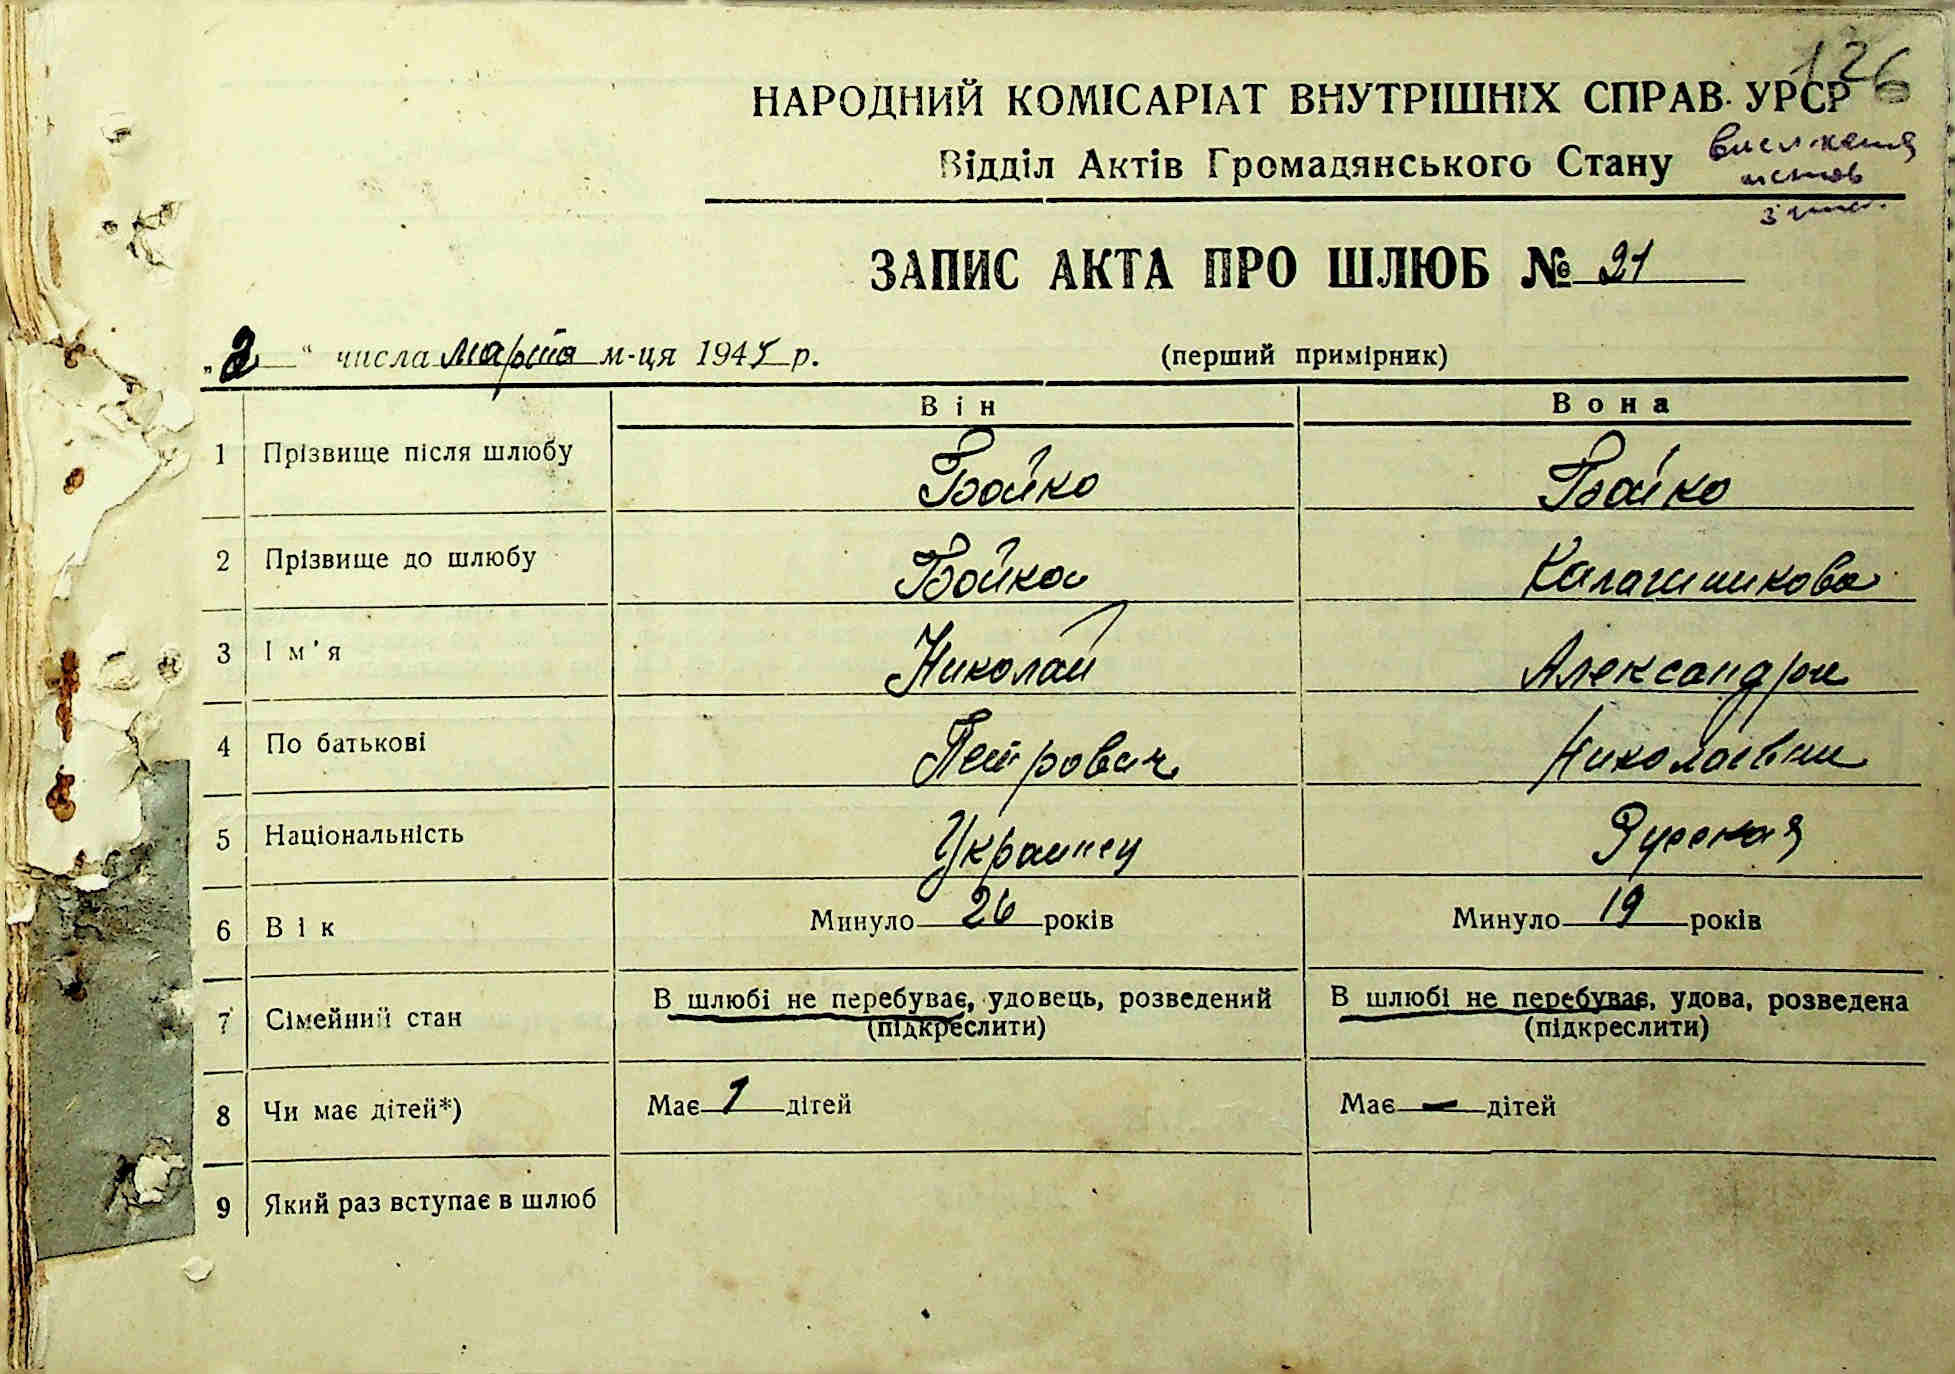 126
НАРОДНИЙ КОМІСАРІАТ ВНУТРІШНІХ СПРАВ УРСР
Відділ Актів Громадянського Стану
ЗАПИС АКТА ПРО ШЛЮБ № 21
„2“ числа марта м-ця 1945 р. (перший примірник)
Він Вона
1 Прізвище після шлюбу Бойко Бойко
2 Прізвище до шлюбу Бойко Калашникова
3 Ім'я Николай Александра
4 По батькові Петрович Николаевна
5 Національність Украинец Русская
6 Вік Минуло 26 років Минуло 19 років
7 Сімейний стан В шлюбі не перебуває, удовець, розведений В шлюбі не перебуває, удова, розведена
(підкреслити) (підкреслити)
8 Чи має дітей*) Має 1 дітей Має — дітей
9 Який раз вступає в шлюб